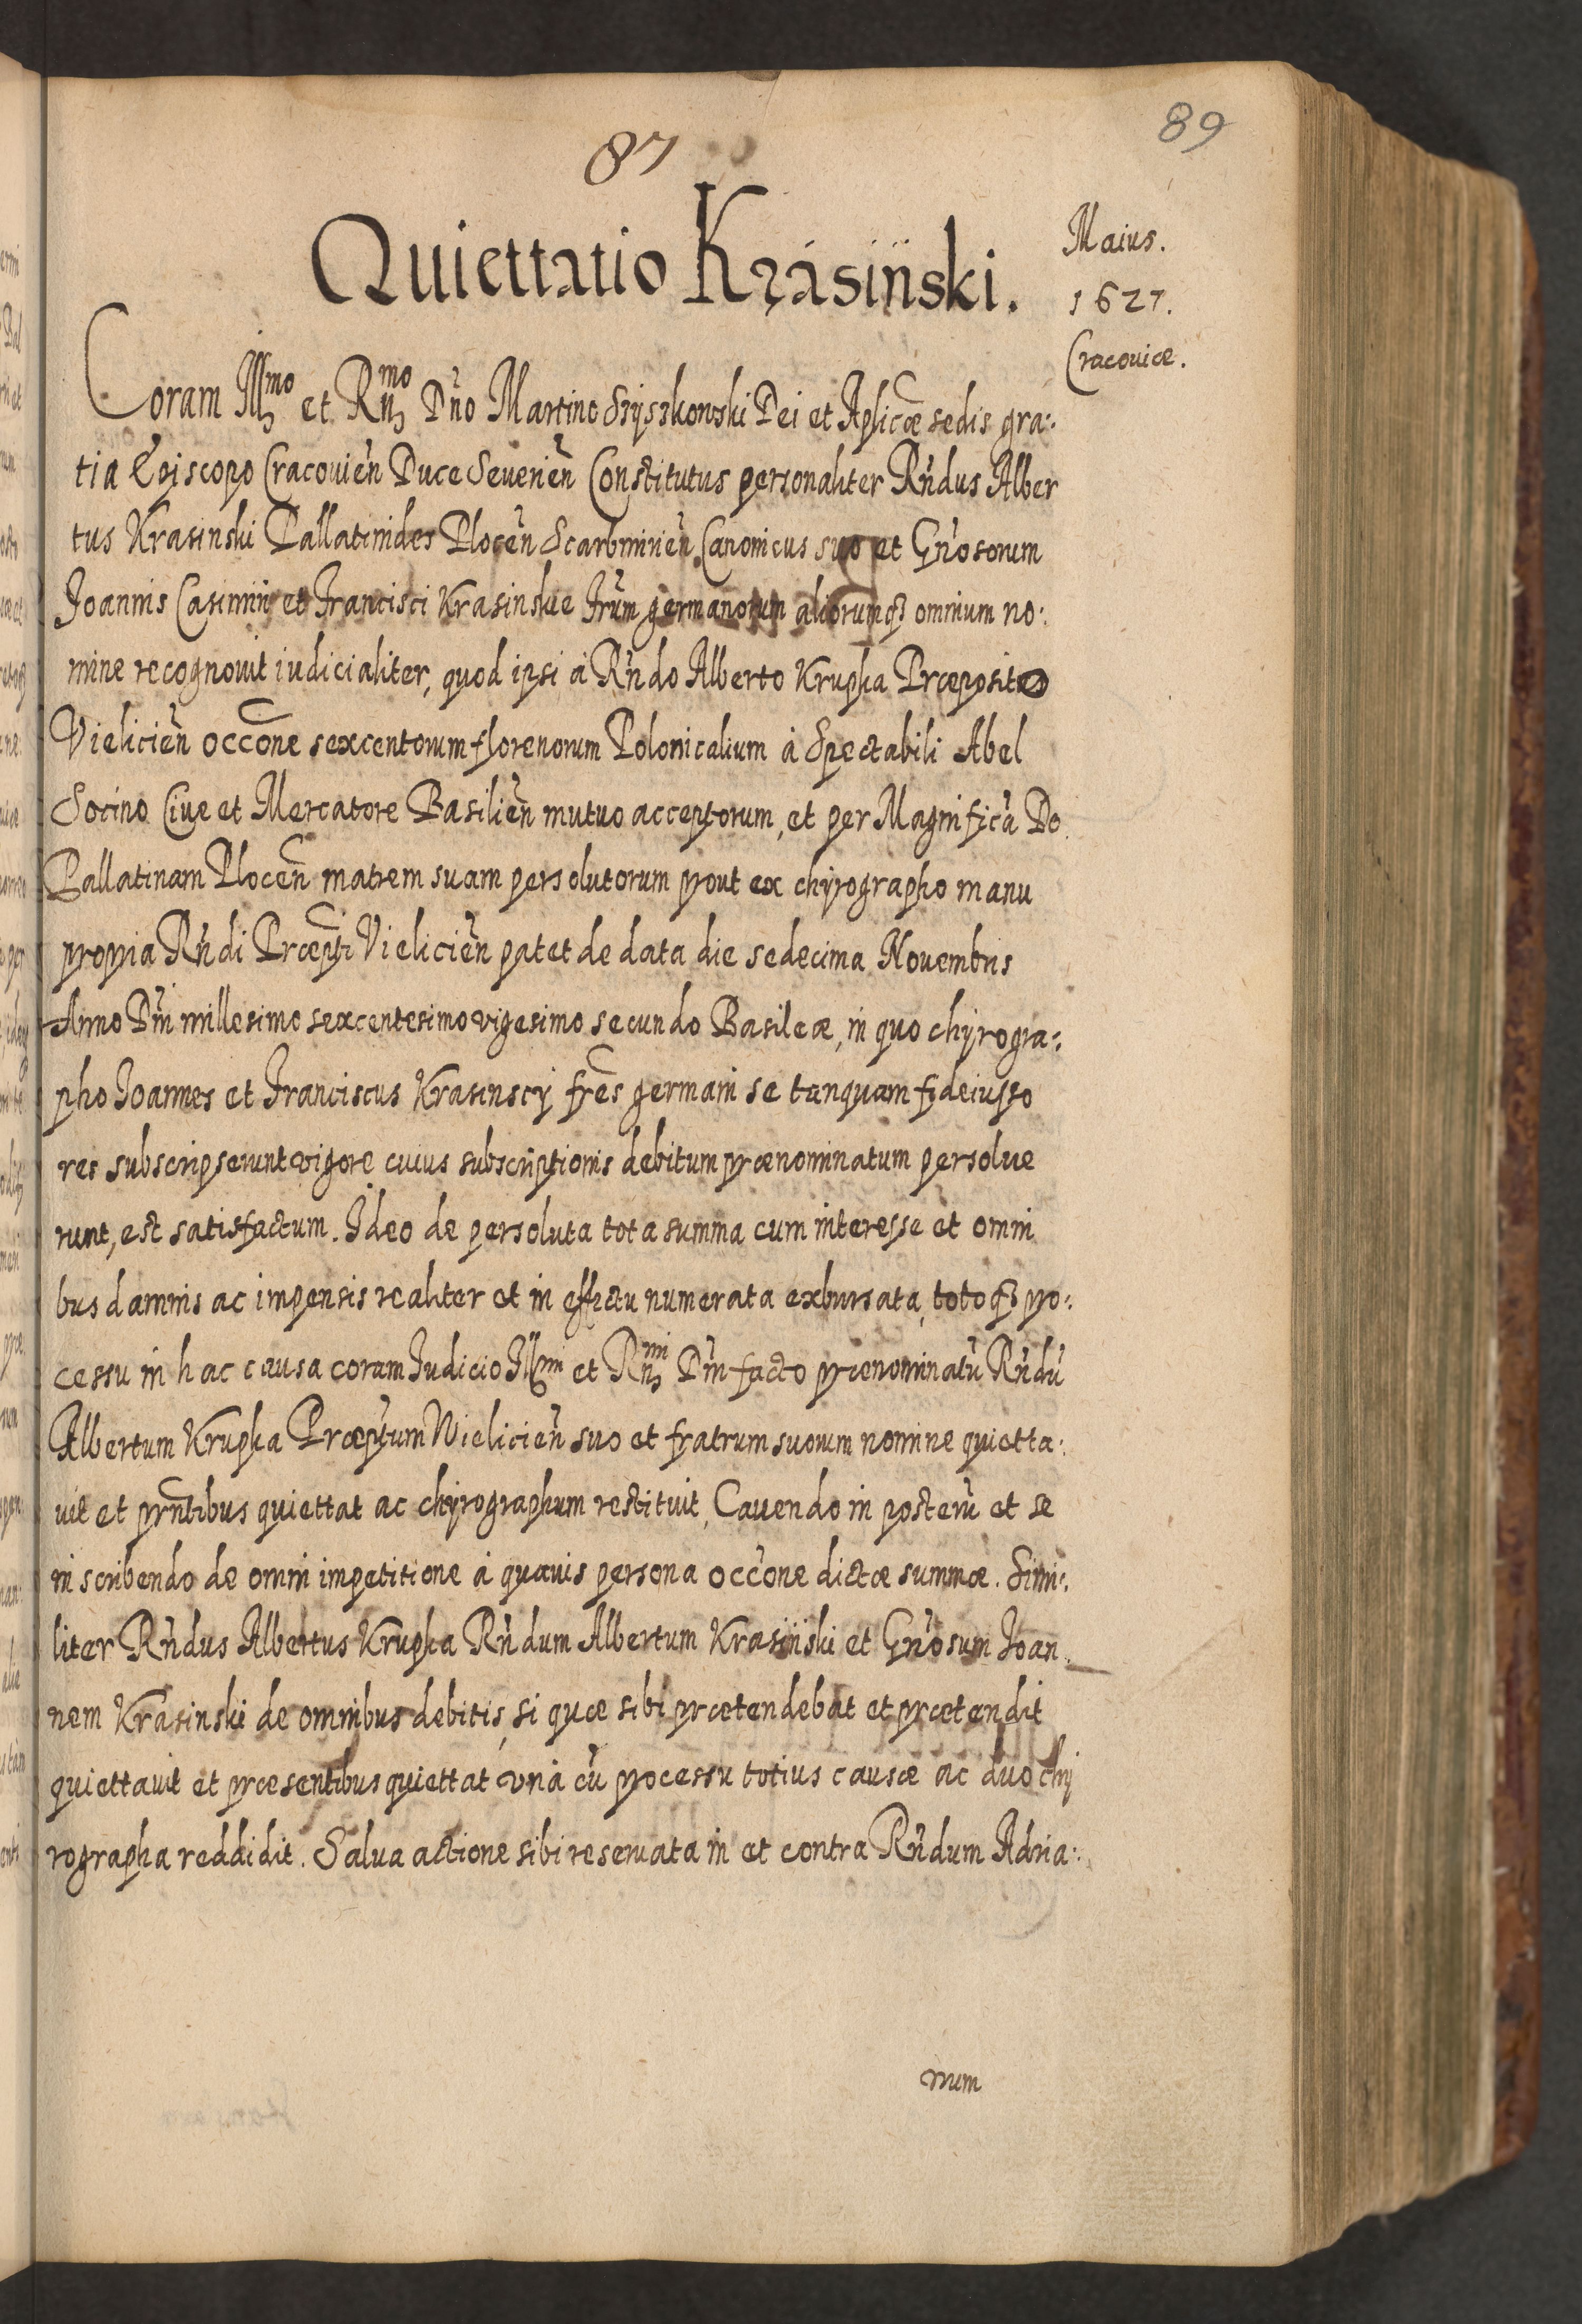 89
87
Quiettatio Krásiński.
Maius.
1627.
Cracouiæ.
Coram Illmo et Rndmo Dno Martino Szyszkowski Dei et Aplicæ sedis gra:
tia Episcopo Cracouień Duce Seuerień Constitutus personaliter Rńdus Alber
tus Krasinski Pallatinides Ploceń Scarbimirień Canonicus suo et Gńosorum
Joannis Casimiri et Francisci Krasinskie frum germanorum aliorumq3 omnium no:
mine recognouit iudicialiter, quod ipsi à Rńdo Alberto Krupka Præposito
Vielicień occone sexcentorum florenorum Polonicalium à Spectabili Abel
Socino Ciue et Mercatore Basilień mutuo acceptorum, et per Magnificã Do
Pallatinam Ploceń matrem suam persolutorum prout ex chyrographo manu
propria Rńdi Præpti Vielicień patet de data die sedecima Nouembris
Anno Dni millesimo sexcentesimo vigesimo secundo Basileæ, in quo chyrogra:
pho Joannes et Franciscus Krasinscy fres germani se tanquam fideiusso
res subscripserunt vigore cuius subscriptionis debitum prænominatum persolue
runt, est satisfactum. Ideo de persoluta tota summa cum interesse et omni
bus damnis ac impensis realiter et in effectu numerata exbursata, totoq3 pro:
cessu in hac causa coram Iudicio Illmi et Rndmi Dni facto prænominatũ Rńdũ
Albertum Krupka Præptum Wielicień suo et fratrum suorum nomine quietta:
uit et prntibus quiettat ac chyrographum restituit, Cauendo in posterũ et se
inscribendo de omni impetitione à quauis persona occone dictæ summæ. Simi:
liter Rńdus Albertus Krupka Rńdum Albertum Krasiński et Gńosum Joan
nem Krasinski de omnibus debitis, si quæ sibi prætendebat et prætendit
quiettauit et præsentibus quiettat vnà cũ processu totius causæ ac duo chy
rographa reddidit. Salua actione sibi reseruata in et contra Rńdum Adria:
num